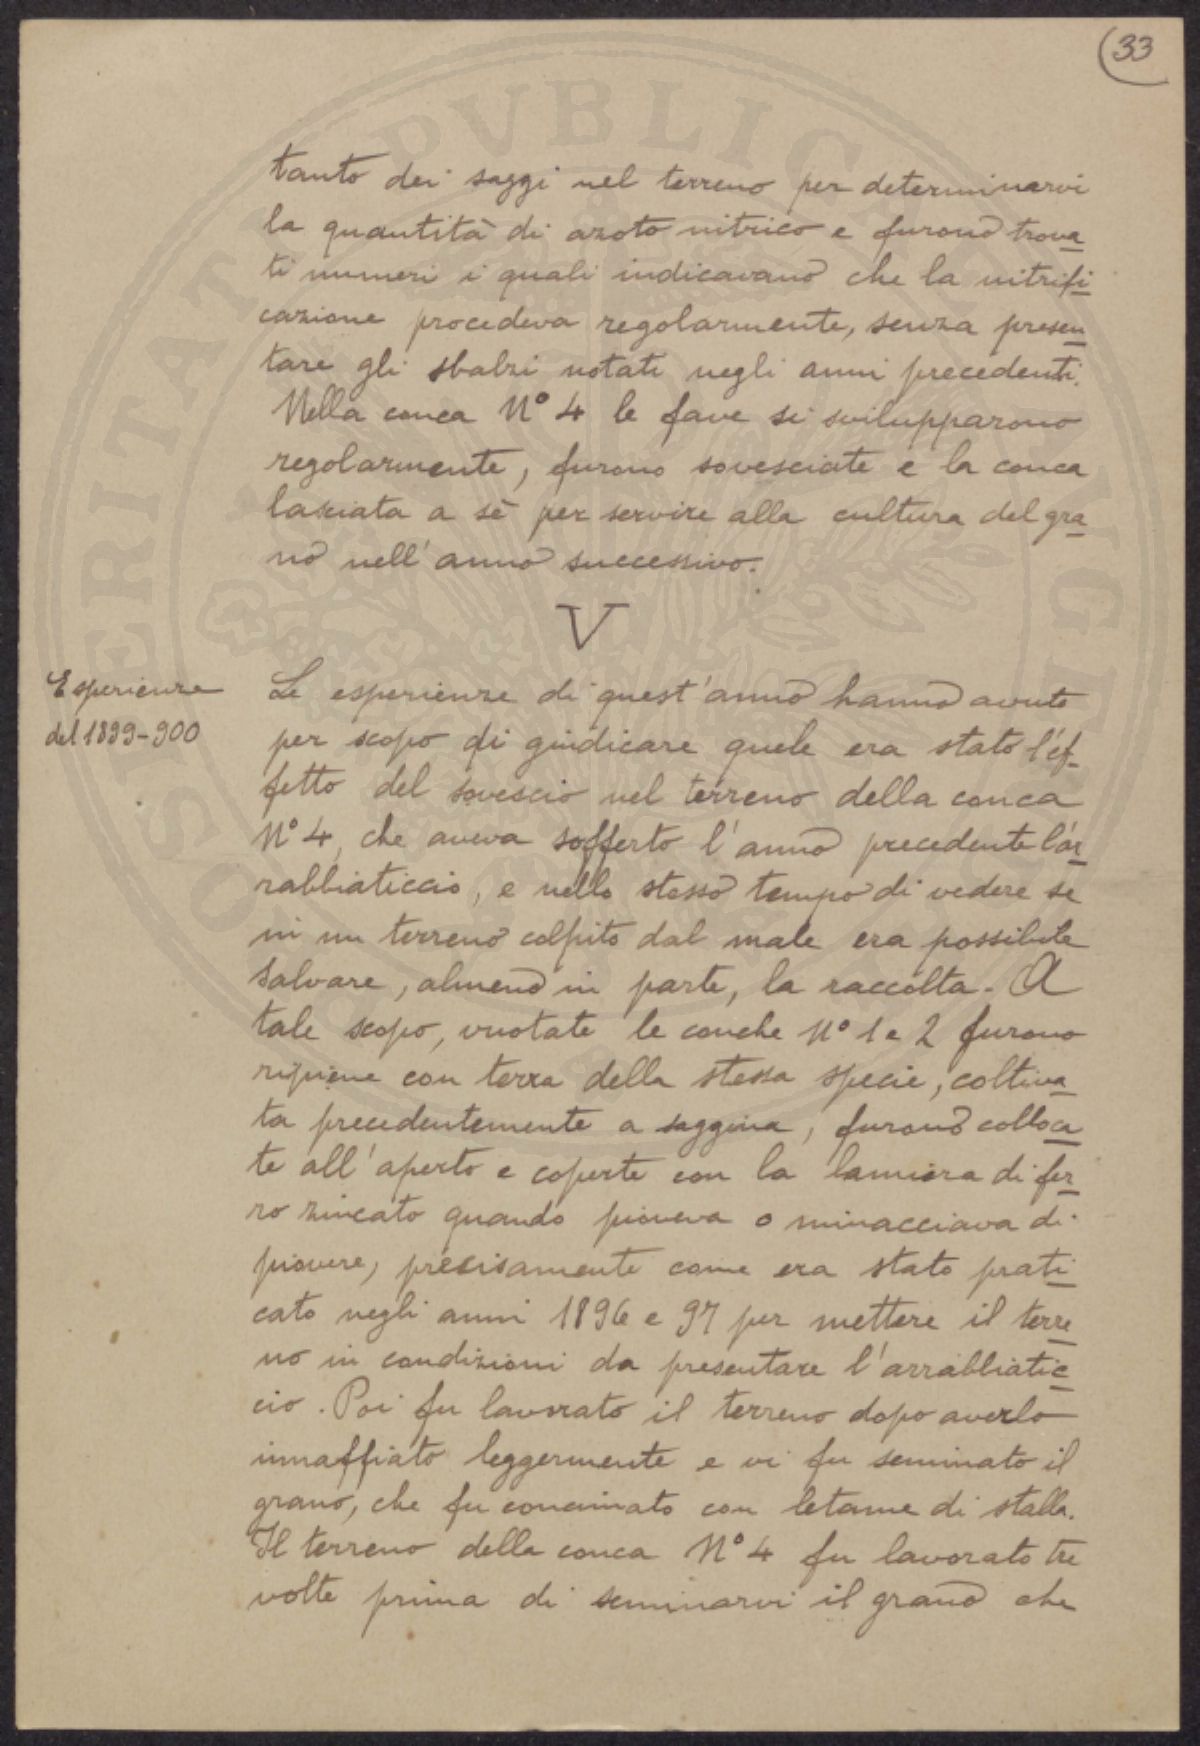 33
tanto dei saggi nel terreno per determinarvi
la quantità di azoto nitrico e furono trova
ti numeri i quali indicavano che la nitrifi
cazione procedeva regolarmente, senza presen
tare gli sbalzi notati negli anni precedenti.
Nella conca N° 4 le fave si svilupparono
regolarmente, furono sovesciate e la conca
lasciata a sè per servire alla cultura del gra
no nell'anno successivo.
V
Esperienze
del 1899-900
Le esperienze di quest'anno hanno avuto
per scopo di giudicare quale era stato l'ef
fetto del sovescio nel terreno della conca
N° 4, che aveva sofferto l'anno precedente l'ar
rabbiaticcio, e nello stesso tempo di vedere se
in un terreno colpito dal male era possibile
salvare, almeno in parte, la raccolta. A
tale scopo, vuotate le conche N° 1 e 2 furono
ripiene con terra della stessa specie, coltiva
ta precedentemente a saggina, furono colloca
te all'aperto e coperte con la lamiera di fer
ro zincato quando pioveva o minacciava di
piovere, precisamente come era stato prati
cato negli anni 1896 e 97 per mettere il terre
no in condizioni da presentare l'arrabbiatic
cio. Poi fu lavorato il terreno dopo averlo
innaffiato leggermente e vi fu seminato il
grano, che fu concimato con letame di stalla.
Il terreno della conca N° 4 fu lavorato tre
volte prima di seminarvi il grano che
PVBLICAE
PROSPERITATI